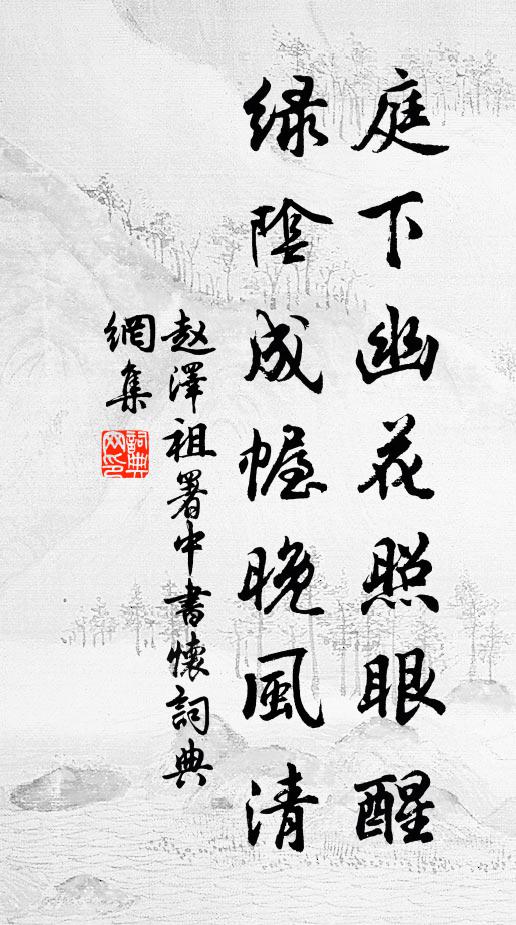 庭下幽花照眼醒
绿陰成幄晚風清
赵澤祖署中書懷詞典
網集
詞典網印